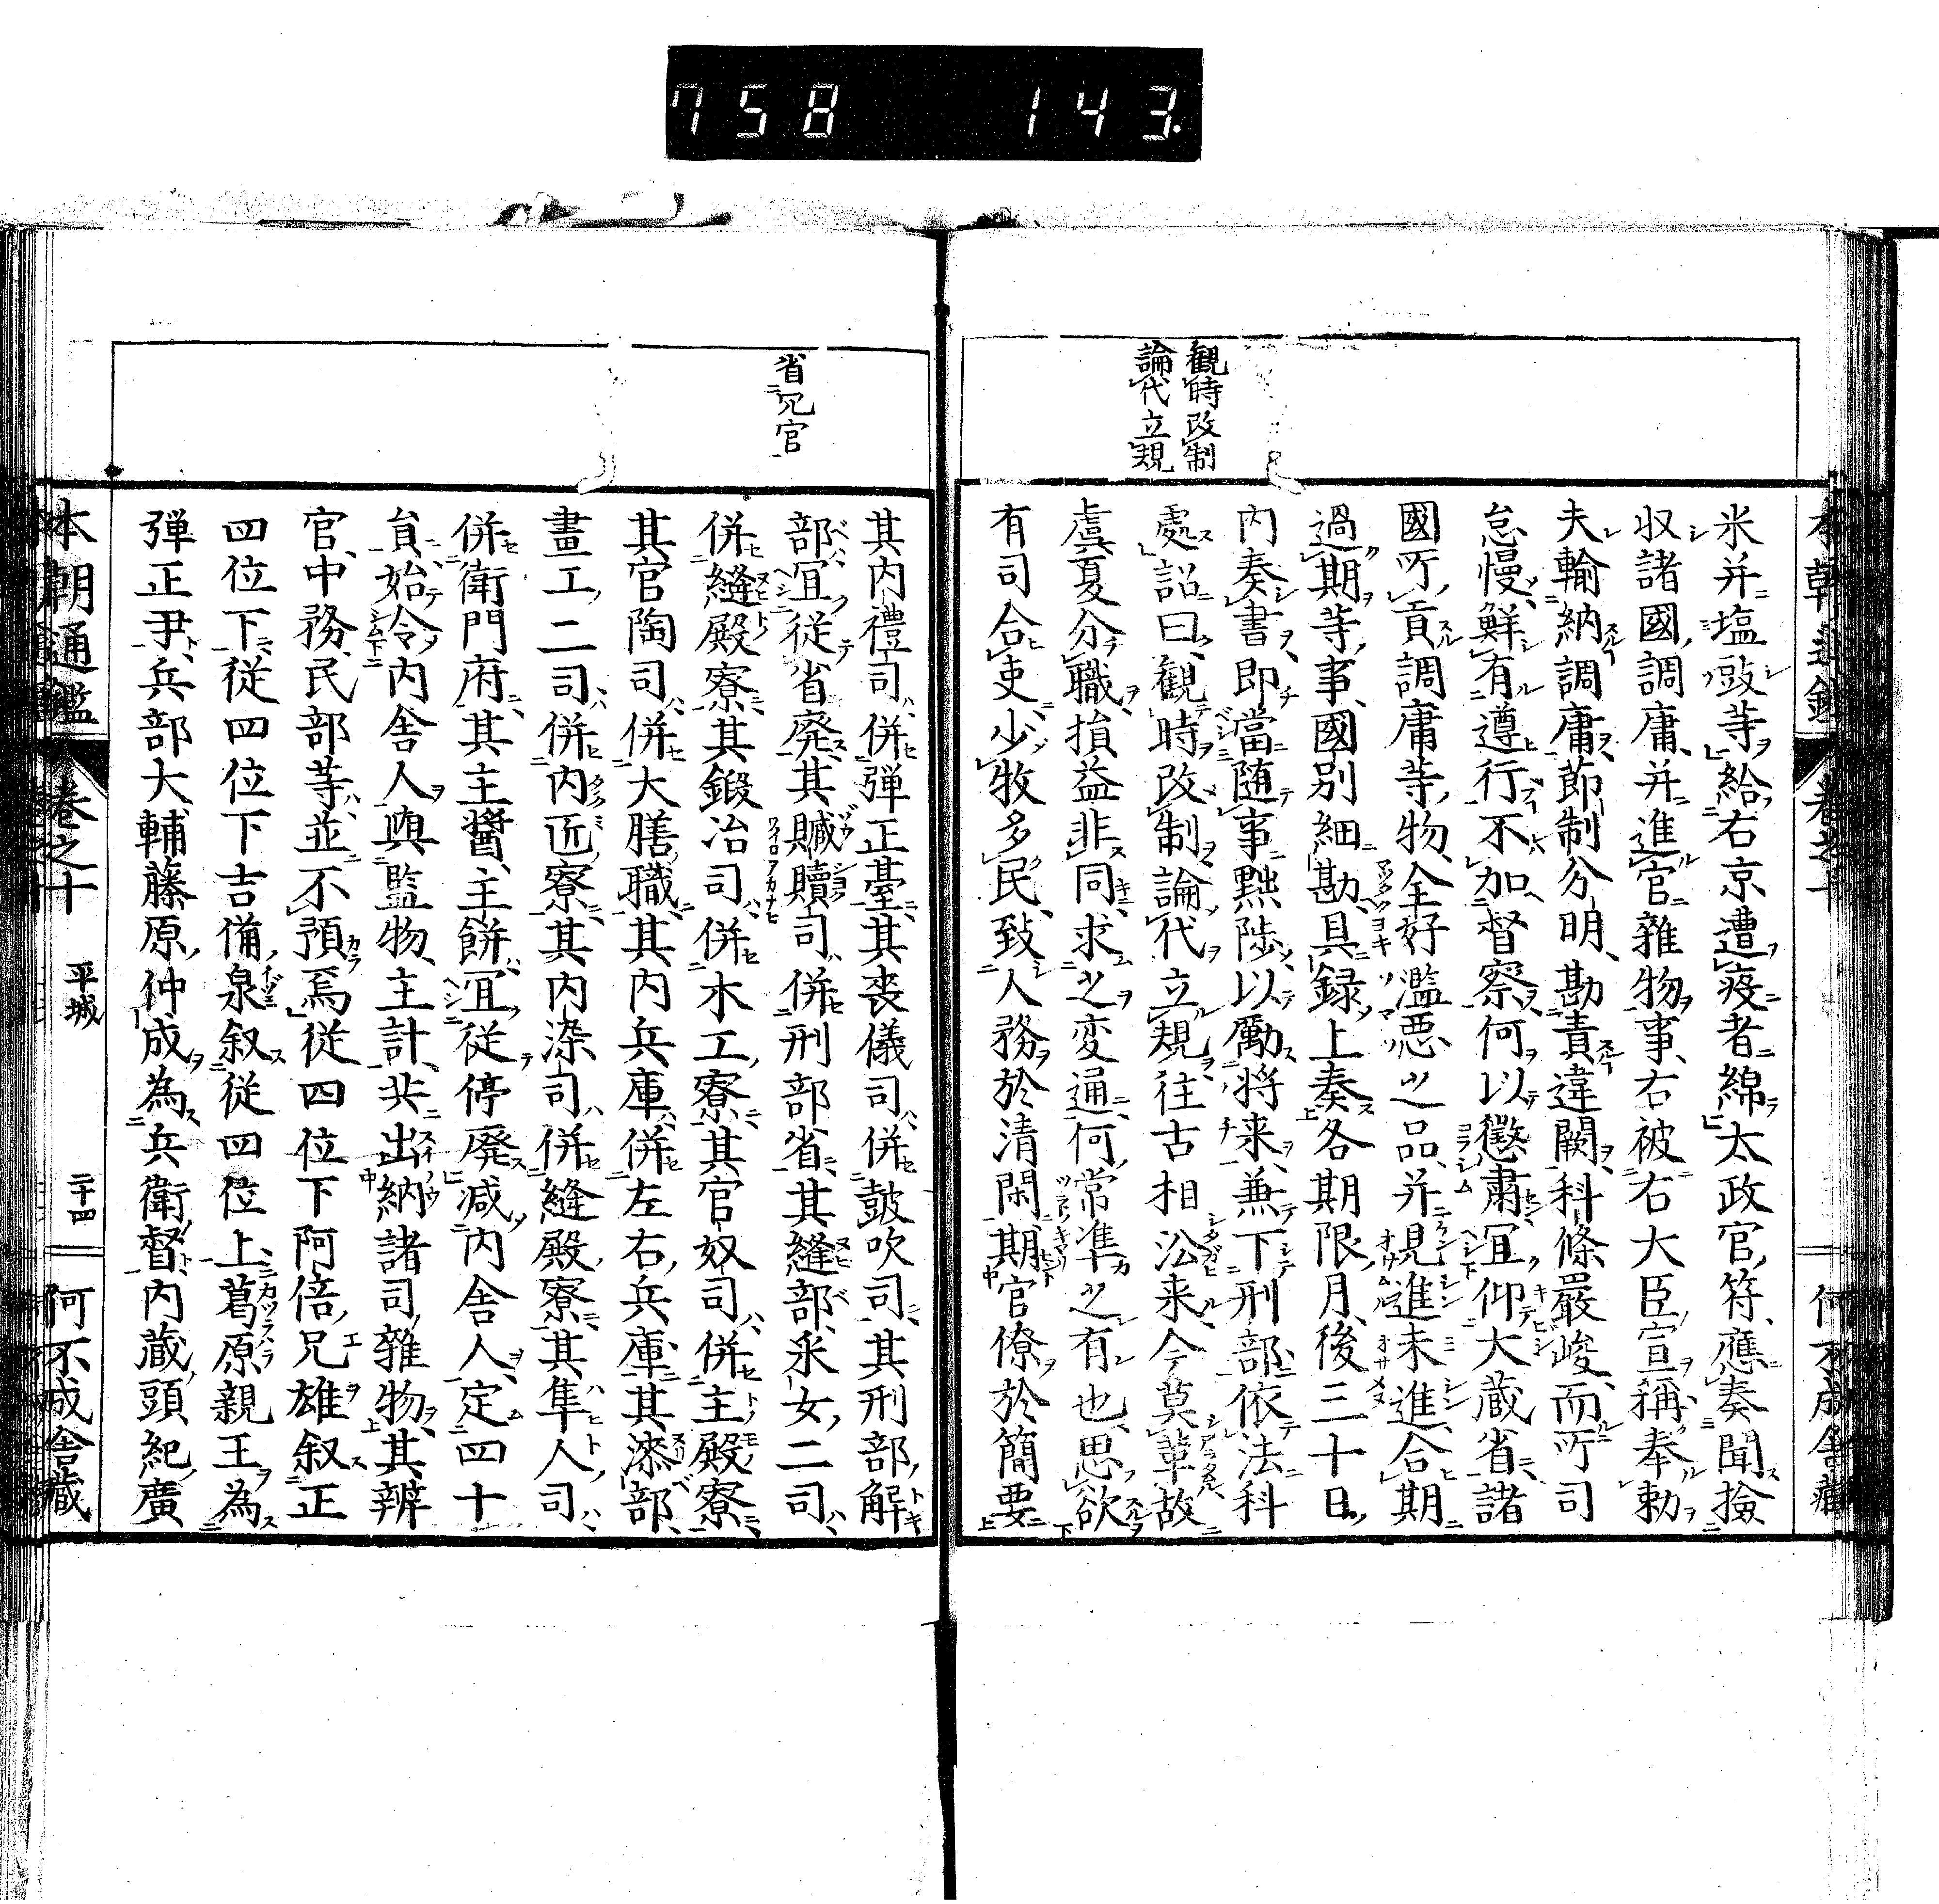 758 143.
觀時改制
論代立規
米并塩豉等給右京遭疫者綿太政官符應奏聞撿
収諸國調庸并進官雜物事右被右大臣宣稱奉勅
夫輸納調庸節制分明勘責違闕科條嚴峻而所司
怠慢鮮有遵行不加督察何以懲肅冝仰大蔵省諸
國所貢調庸等物全好濫悪之品并見進未進合期
過期等事國別細勘具録上奏各期限月後三十日
内奏書即當随事黜陟以勵将来兼下刑部依法科
處詔曰觀時改制論代立規往古相沿来今莫革故
虞夏分職損益非同求之変通何常準之有也思欲
有司合吏少牧多民致人務於清閑期官僚於簡要
省冗官
其内禮司併弾正臺其喪儀司併鼓吹司其刑部解
部冝従省廃其贓贖司併刑部省其縫部采女二司
併縫殿寮其鍛冶司併木工寮其官奴司併主殿寮
其官陶司併大膳職其内兵庫併左右兵庫其漆部
畫工二司併内匠寮其内染司併縫殿寮其隼人司
併衛門府其主醤主餅冝従停廃減内舎人定四十
員始令内舎人與監物主計共出納諸司雜物其辨
官中務民部等並不預焉従四位下阿倍兄雄叙正
四位下従四位下吉備泉叙従四位上葛原親王為
弾正尹兵部大輔藤原仲成為兵衛督内蔵頭紀廣
本朝通鑑 卷之十 平城 二十四 何不成舎藏